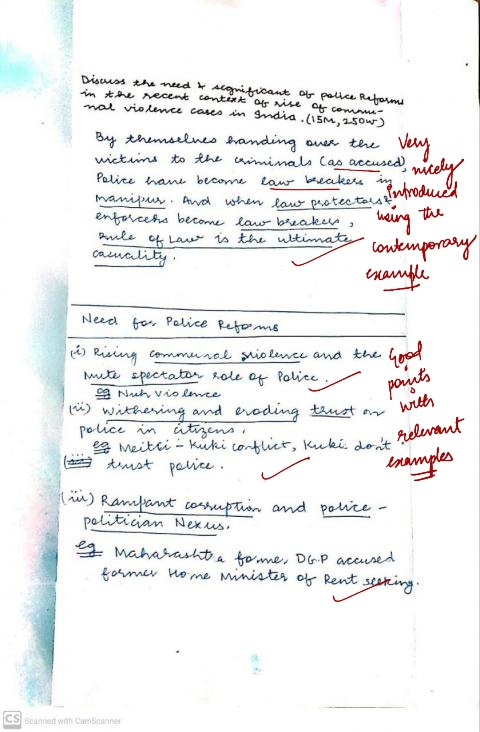 Discuss the need & significant of police Reforms
in the recent context of rise of commu-
nal violence cases in India. (15M, 250W)
By themselves handing over the
victims to the criminals (as accused)
Police have become law breakers in
Manipur. And when law protectors &
enforcers become law breakers,
Rule of Law is the ultimate
casuality.
Very
nicely
introduced
using the
contemporary
example
Need for Police Reforms
(i) Rising communal violence and the
mute spectator role of Police.
eg Nuh violence
(ii) Withering and eroding trust on
police in citizens.
eg Meitei - Kuki conflict, Kuki don't
(iii) trust police.
Good
points
with
relevant
examples
(iii) Rampant corruption and police -
politician Nexus.
eg Maharashtra forme. DGP accused
former Home Minister of Rent seeking.
CS Scanned with CamScanner